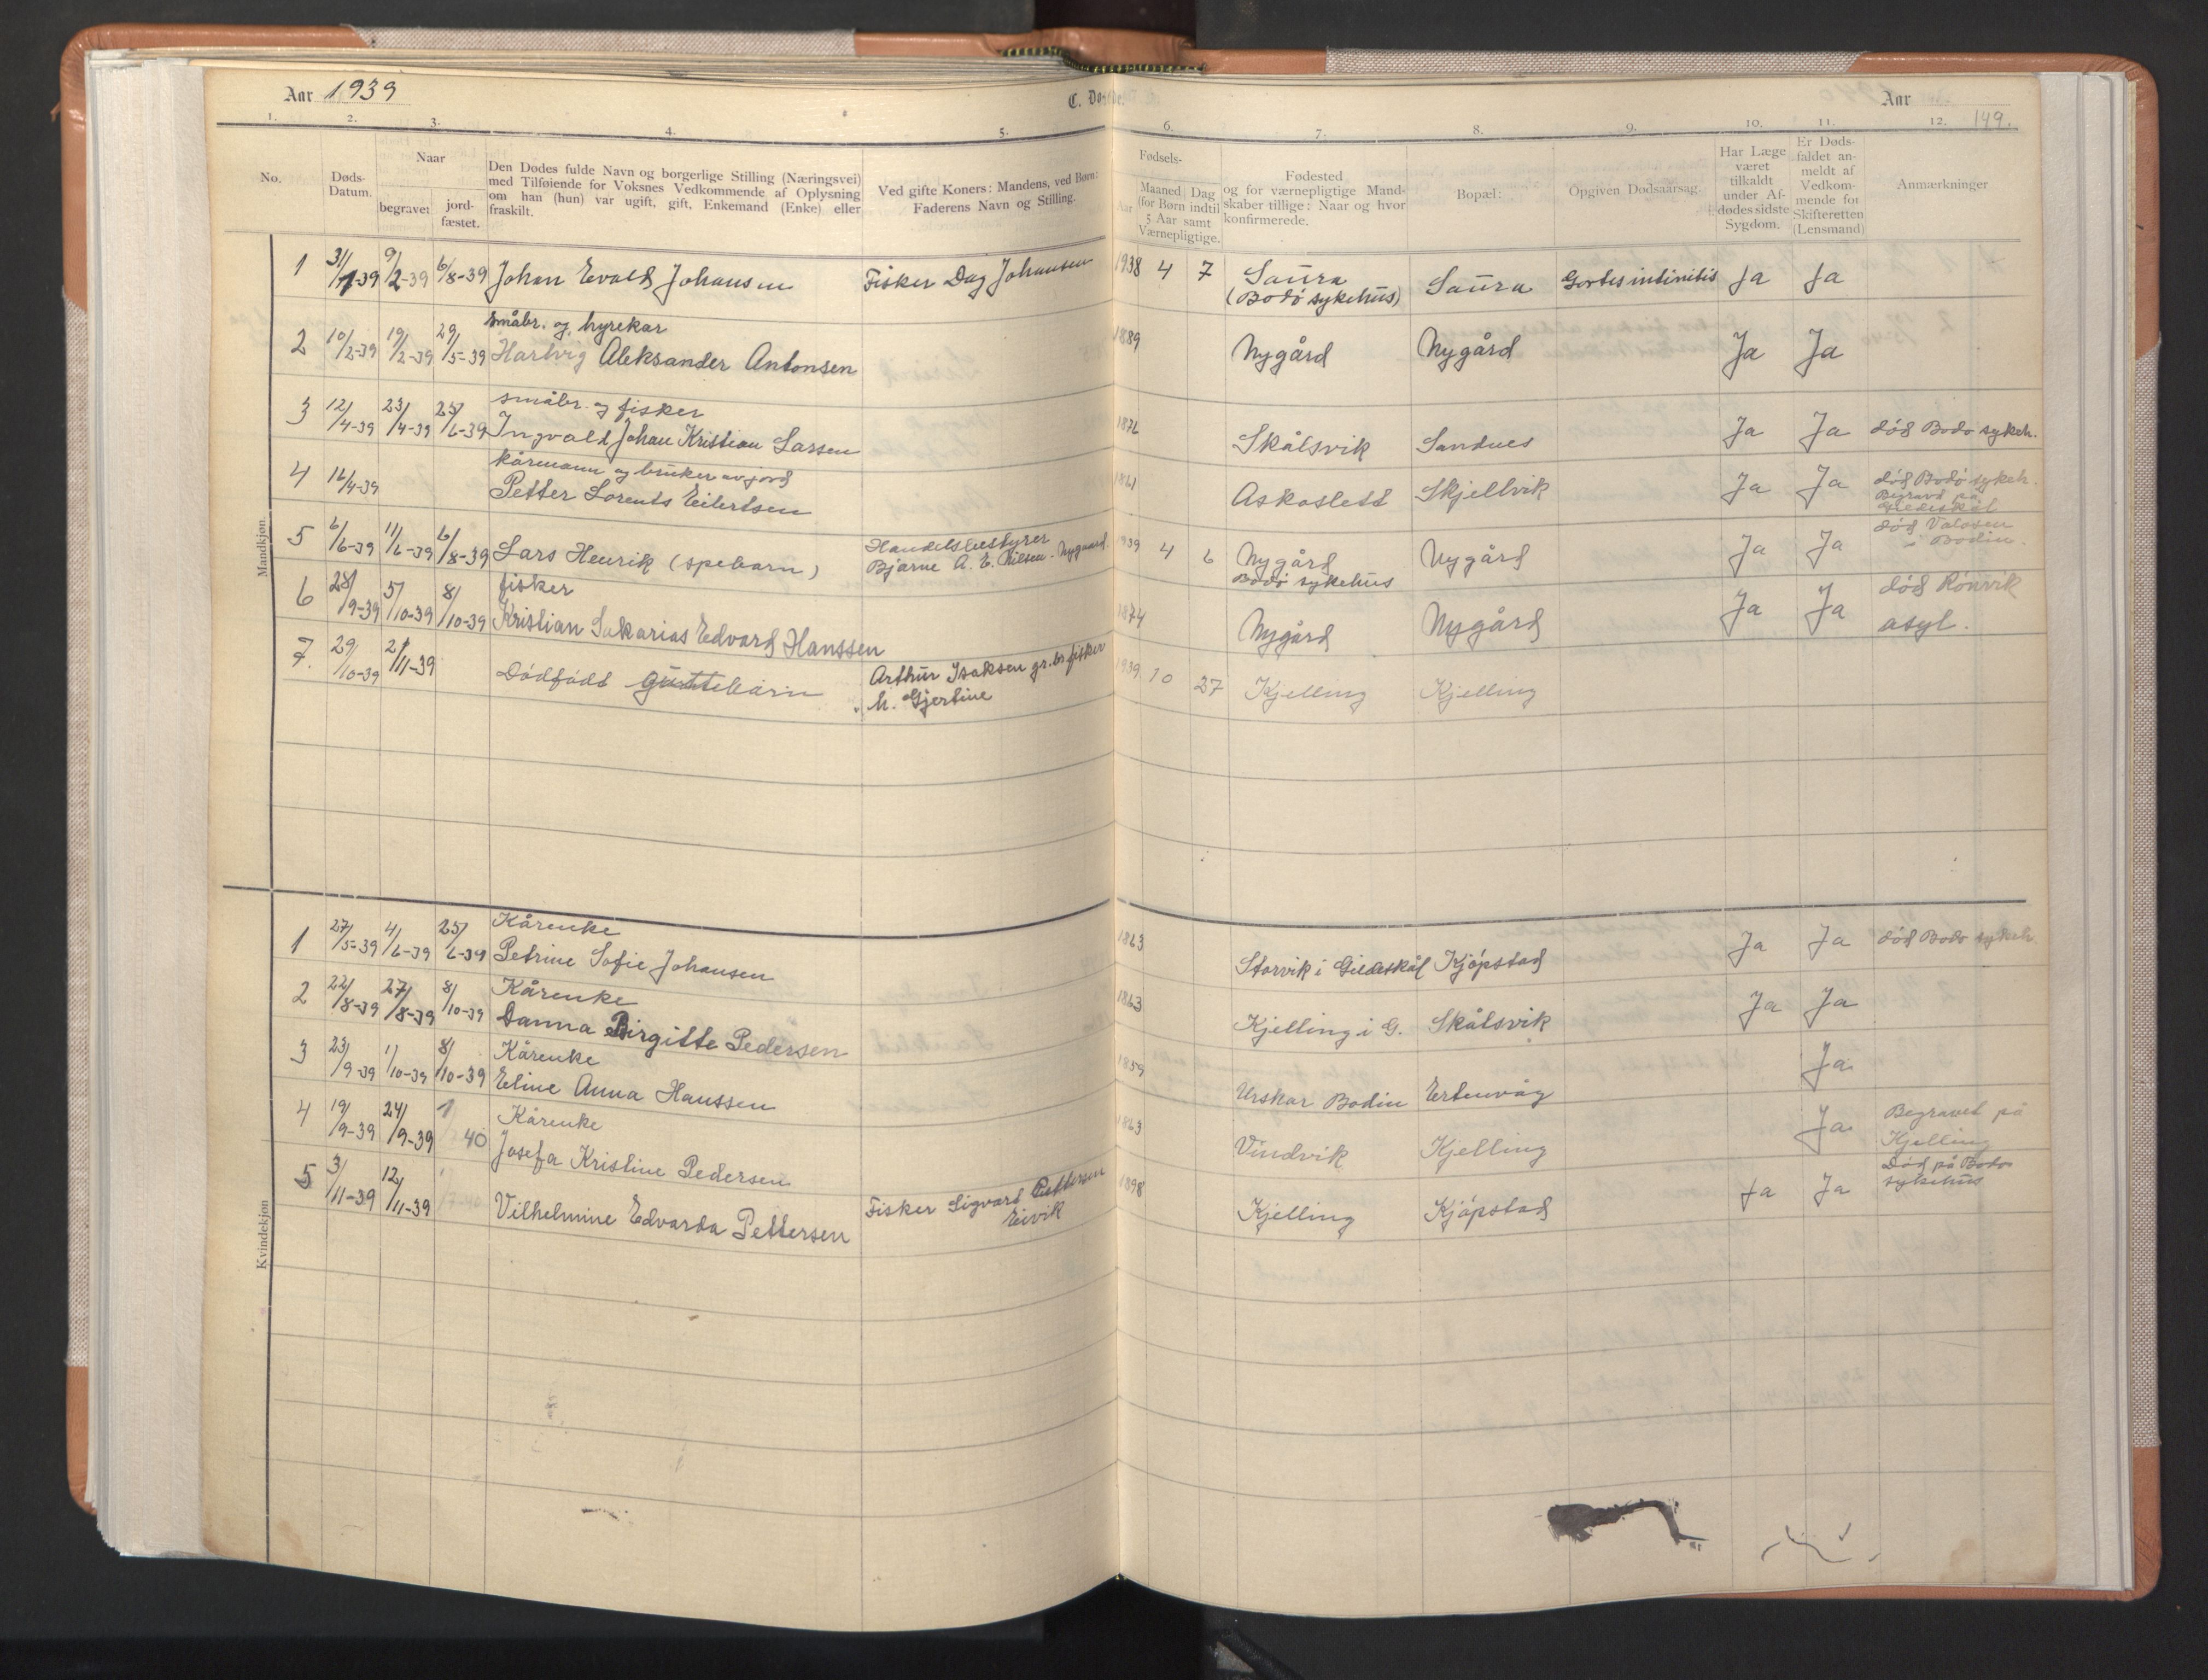 Aar 1939
C. Døde.
Aar
149.
1. 2. 3. 4. 5. 6. 7. 8. 9. 10. 11. 12.
No.
Døds-Datum.
Naar
begravet
jord-fæstet.
Den Dødes fulde Navn og borgerlige Stilling (Næringsvei)
med Tilføiende for Voksnes Vedkommende af Oplysning
om han (hun) var ugift, gift, Enkemand (Enke) eller
fraskilt.
Ved gifte Koners: Mandens, ved Børn:
Faderens Navn og Stilling.
Fødsels-
Aar
Maaned Dag
(for Børn indtil
5 Aar samt
Værnepligtige.
Fødested
og for værnepligtige Mand-
skaber tillige: Naar og hvor
konfirmerede.
Bopæl:
Opgiven Dødsaarsag.
Har Læge
været
tilkaldt
under Af-
dødes sidste
Sygdom.
Er Døds-
faldet an-
meldt af
Vedkom-
mende for
Skifteretten
(Lensmand)
Anmærkninger
Mandkjøn.
1 31/1-39 9/2-39 6/8-39 Johan Evald Johansen Fisker Dag Johansen 1938 4 7 Saura (Bodø sykehus) Saura Ja Ja
småbr. og hyrekar
2 10/2-39 19/2-39 29/5-39 Hartvig Aleksander Antonsen 1889 Nygård Nygård Ja Ja
småbr. og fisker
3 12/4-39 23/4-39 25/6-39 Ingvald Johan Kristian Larsen 1876 Skålsvik Sandnes Ja Ja död Bodø sykeh.
kårmann og bruker av jord
4 16/4-39 Petter Lorents Eilertsen 1861 Askoslett Skjellvik Ja Ja död Bodø sykeh.
Begravd på
Gildeskål
5 6/6-39 11/6-39 6/8-39 Lars Henrik (spebarn) Handelsbestyrer
Bjarne A. E. Nilsen. Nygaard. 1939 4 6 Nygård
Bodø sykehus Nygård Ja Ja död Valosen
i Bodin.
fisker
6 28/9-39 5/10-39 8/10-39 Kristian Sakarias Edvard Hanssen 1874 Nygård Nygård Ja Ja död Rønvik
asyl.
7. 29/10-39 2/11-39 Dødfødt guttebarn Arthur Isaksen gr.br fisker
h. Gjertine 1939 10 27 Kjelling Kjelling
Kvindekjøn
Kårenke
1 27/5-39 4/6-39 25/6-39 Petrine Sofie Johansen 1863 Storvik i Gildeskål Kjøpstad Ja Ja död Bodø sykeh.
Kårenke
2 22/8-39 27/8-39 8/10-39 Danna Birgitte Pedersen 1863 Kjelling i G. Skålsvik Ja Ja
Kårenke
3 23/9-39 1/10-39 8/10-39 Eline Anna Hanssen 1859 Urskar Bodin Ertenvåg Ja
Kårenke
4 19/9-39 24/9-39 40 Josefa Kristine Pedersen 1863 Vindvik Kjelling Ja Begravet på
Kjelling
5 3/11-39 12/11-39 Vilhelmine Edvarda Pettersen Fisker Sigvart Pettersen
Eivik 1898 Kjelling Kjøpstad Ja Ja Død på Bodø
sykehus